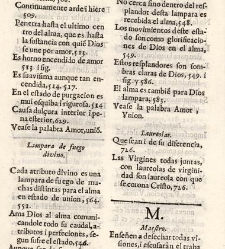 Continuamente arde i hiere
509.
Penetra hasta el ultimo cen
tro del alma, que es hasta
la sustancia con quié Dios
se une por amor, 513.
Es horno encendido de amor
513. sig.
Es suavisima aunque tan en-
cendida, 514. 517.
En el estado de purgacion es
mui esquiva i rigurosa. 514
Causa dulçura interior i pe-
na esterior, 629.
Vease la palabra Amor, unió.
Lampara de fuego
divino.
Cada atributo divino es una
lampara de fuego de mu-
chas distintas para el alma
en estado de union, 564.
552.
Ama Dios al alma comuni-
candole todo su caudal, a-
tributos i perfecciones, se-
gun sufre el estado, 546.
No cerca sino dentro del res-
plandor desta lampara es
recebida el alma, 548.
Los movimientos deste esta-
do son como glorificacio-
nes de Dios en el alma,
549.
Estos resplandores son som-
bras claras de Dios, 549. i
sig. 7986.
El alma es tambié para Dios
lampara, 585.
Vease la palabra Amor,
Union.
Laureolas.
Que sean i de su diferencia,
726.
Las Virgines todas juntas,
con laureolas de virgini-
dad son laureola con que
se corona Cristo, 726.
M.
Maestro.
Enseñen a desechar todas vi-
siones, i escusarán el traba